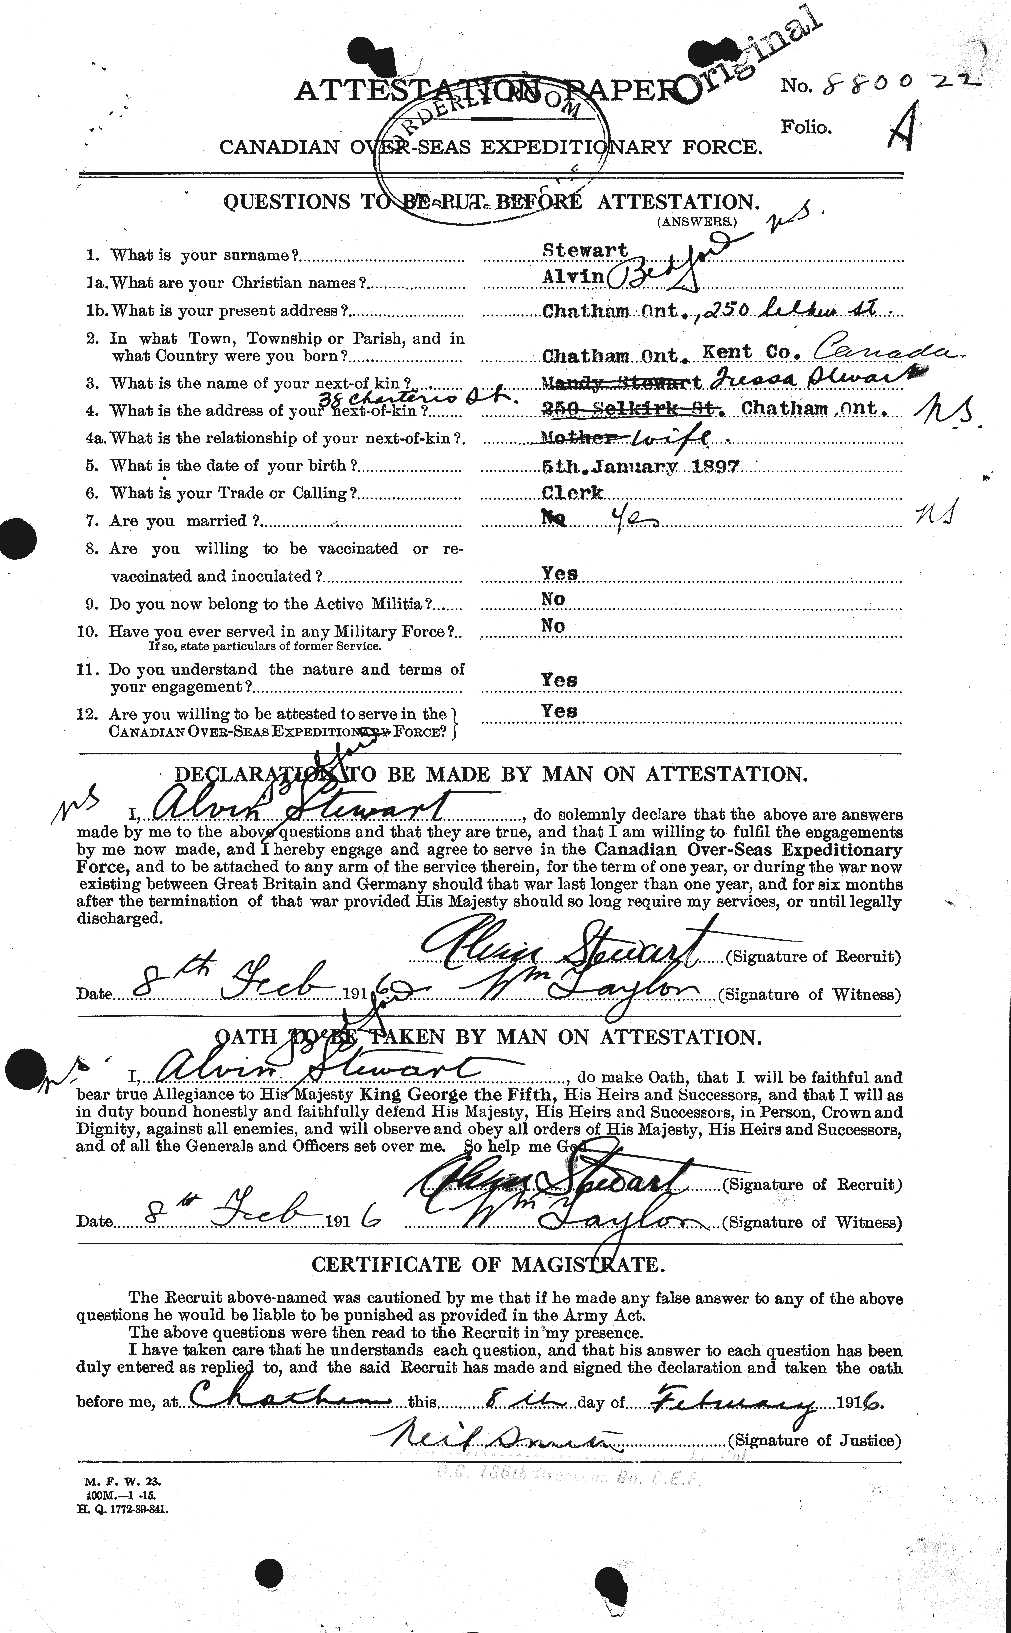 Original
ATTESTATION PAPER
No. 880022
Folio. A
ORDERLY ROOM
CANADIAN OVER-SEAS EXPEDITIONARY FORCE.
QUESTIONS TO BE PUT BEFORE ATTESTATION.
(ANSWERS.)
ns.
1. What is your surname? Stewart
1a. What are your Christian names? Alvin Bedford
1b. What is your present address? Chatham Ont., 250 st.
2. In what Town, Township or Parish, and in
what Country were you born? Chatham Ont. Kent Co. Canada.
3. What is the name of your next-of kin? Mandy Stewart Tressa Stewart
38 Charteris St.
4. What is the address of your next-of-kin? 250 Selkirk St. Chatham Ont. NS.
4a. What is the relationship of your next-of-kin? Mother wife.
5. What is the date of your birth? 5th. January 1897
6. What is your Trade or Calling? Clerk
7. Are you married? No Yes ns
8. Are you willing to be vaccinated or re-
vaccinated and inoculated? Yes
9. Do you now belong to the Active Militia? No
10. Have you ever served in any Military Force? No
If so, state particulars of former Service.
11. Do you understand the nature and terms of
your engagement? Yes
12. Are you willing to be attested to serve in the Yes
CANADIAN OVER-SEAS EXPEDITIONARY FORCE?
DECLARATION TO BE MADE BY MAN ON ATTESTATION.
Bedford
ns I, Alvin Stewart, do solemnly declare that the above are answers
made by me to the above questions and that they are true, and that I am willing to fulfil the engagements
by me now made, and I hereby engage and agree to serve in the Canadian Over-Seas Expeditionary
Force, and to be attached to any arm of the service therein, for the term of one year, or during the war now
existing between Great Britain and Germany should that war last longer than one year, and for six months
after the termination of that war provided His Majesty should so long require my services, or until legally
discharged.
Alvin Stewart (Signature of Recruit)
Date 8th Feb 1916 Wm Taylor (Signature of Witness)
OATH TO BE TAKEN BY MAN ON ATTESTATION.
Bedford
ns. I, Alvin Stewart, do make Oath, that I will be faithful and
bear true Allegiance to His Majesty King George the Fifth, His Heirs and Successors, and that I will as
in duty bound honestly and faithfully defend His Majesty, His Heirs and Successors, in Person, Crown and
Dignity, against all enemies, and will observe and obey all orders of His Majesty, His Heirs and Successors,
and of all the Generals and Officers set over me. So help me God.
Alvin Stewart (Signature of Recruit)
Date 8th Feb 1916 Wm Taylor (Signature of Witness)
CERTIFICATE OF MAGISTRATE.
The Recruit above-named was cautioned by me that if he made any false answer to any of the above
questions he would be liable to be punished as provided in the Army Act.
The above questions were then read to the Recruit in my presence.
I have taken care that he understands each question, and that his answer to each question has been
duly entered as replied to, and the said Recruit has made and signed the declaration and taken the oath
before me, at Chatham this 8th day of February 1916.
Neil Smith (Signature of Justice)
O.C. 186th Bn. C.E.F.
M. F. W. 23.
400M.—1-15.
H. Q. 1772-39-841.